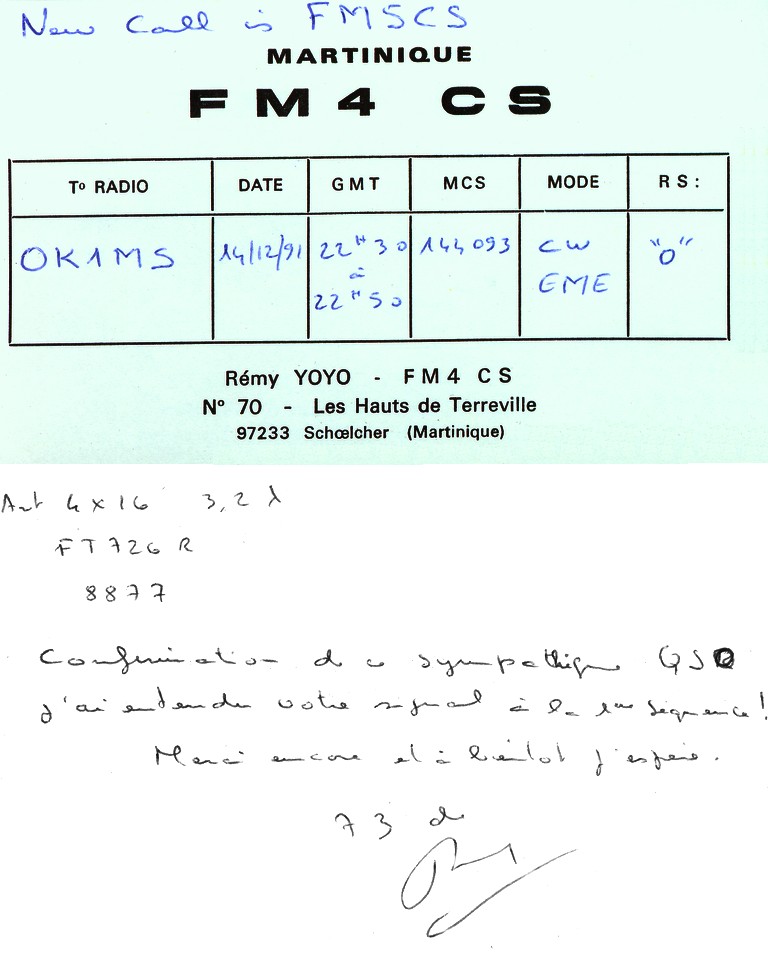 New Call is FM5CS
MARTINIQUE
FM4 CS
Tº RADIO DATE GMT MCS MODE RS:
OK1MS 14/12/91 22H30 à 22H50 144 093 CW EME "O"
Rémy YOYO - FM4 CS
Nº 70 - Les Hauts de Terreville
97233 Schœlcher (Martinique)
Ant 4x16 3,2 λ
FT726 R
8877
Confirmation de ce sympathique QSO
j'ai entendu votre signal à la 1ere séquence!
Merci encore et à bientot j'espère.
73 de